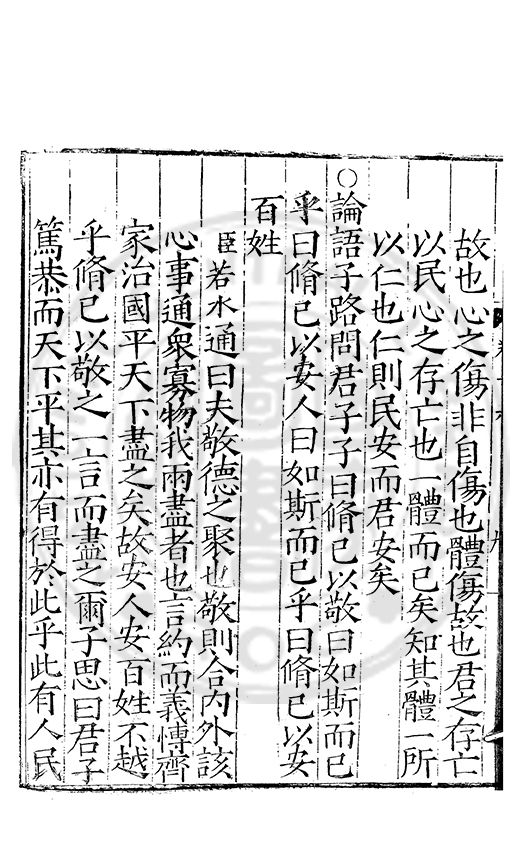 故也心之傷非自傷也體傷故也君之存亡
以民心之存亡也一體而已矣知其體一所
以仁也仁則民安而君安矣
○論語子路問君子子曰脩己以敬曰如斯而已
乎曰脩己以安人曰如斯而已乎曰脩己以安
百姓
臣若水通曰夫敬德之聚也敬則合內外該
心事通衆寡物我兩盡者也言約而義愽齊
家治國平天下盡之矣故安人安百姓不越
乎脩己以敬之一言而盡之爾子思曰君子
篤恭而天下平其亦有得於此乎此有人民